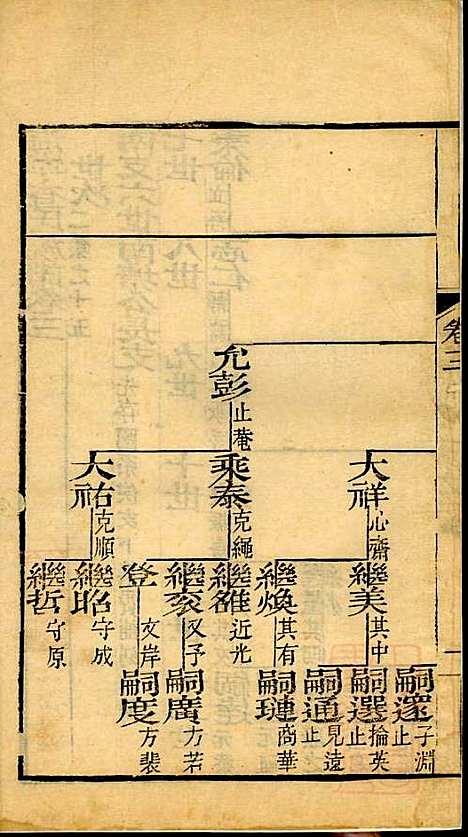 卷三
允彭 止菴
大祥 心齋
秉泰 克繩
大祐 克順
繼美 其中
繼煥 其有
繼雒 近光
繼亥 又予
登 文岸
繼昭 守成
繼哲 守原
嗣選 掄英 止
嗣通 見遠 止
嗣璉 商華
嗣廣 方若
嗣度 方裴